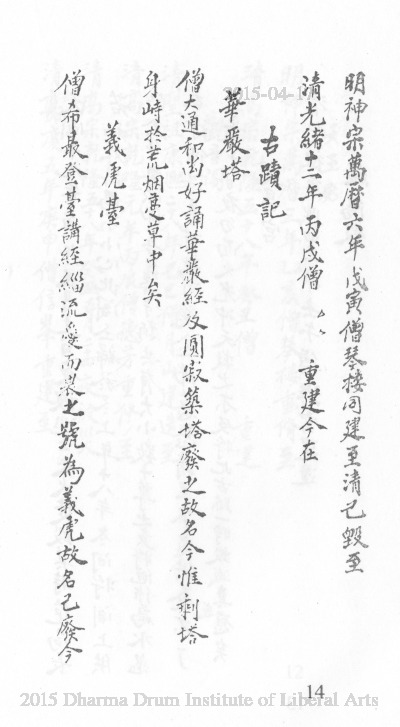 明神宗萬曆六年戊寅僧琴接同建至清已毀至
清光緒十二年丙戌僧 重建今在
古蹟記
華嚴塔
僧大通和尚好誦華嚴經及圓寂築塔瘞之故名今惟剩塔
身峙於荒烟蔓草中矣
義虎臺
僧希最登臺講經緇流愛而畏之號為義虎故名已廢今
2015-04-1
14
2015 Dharma Drum Institute of Liberal Arts